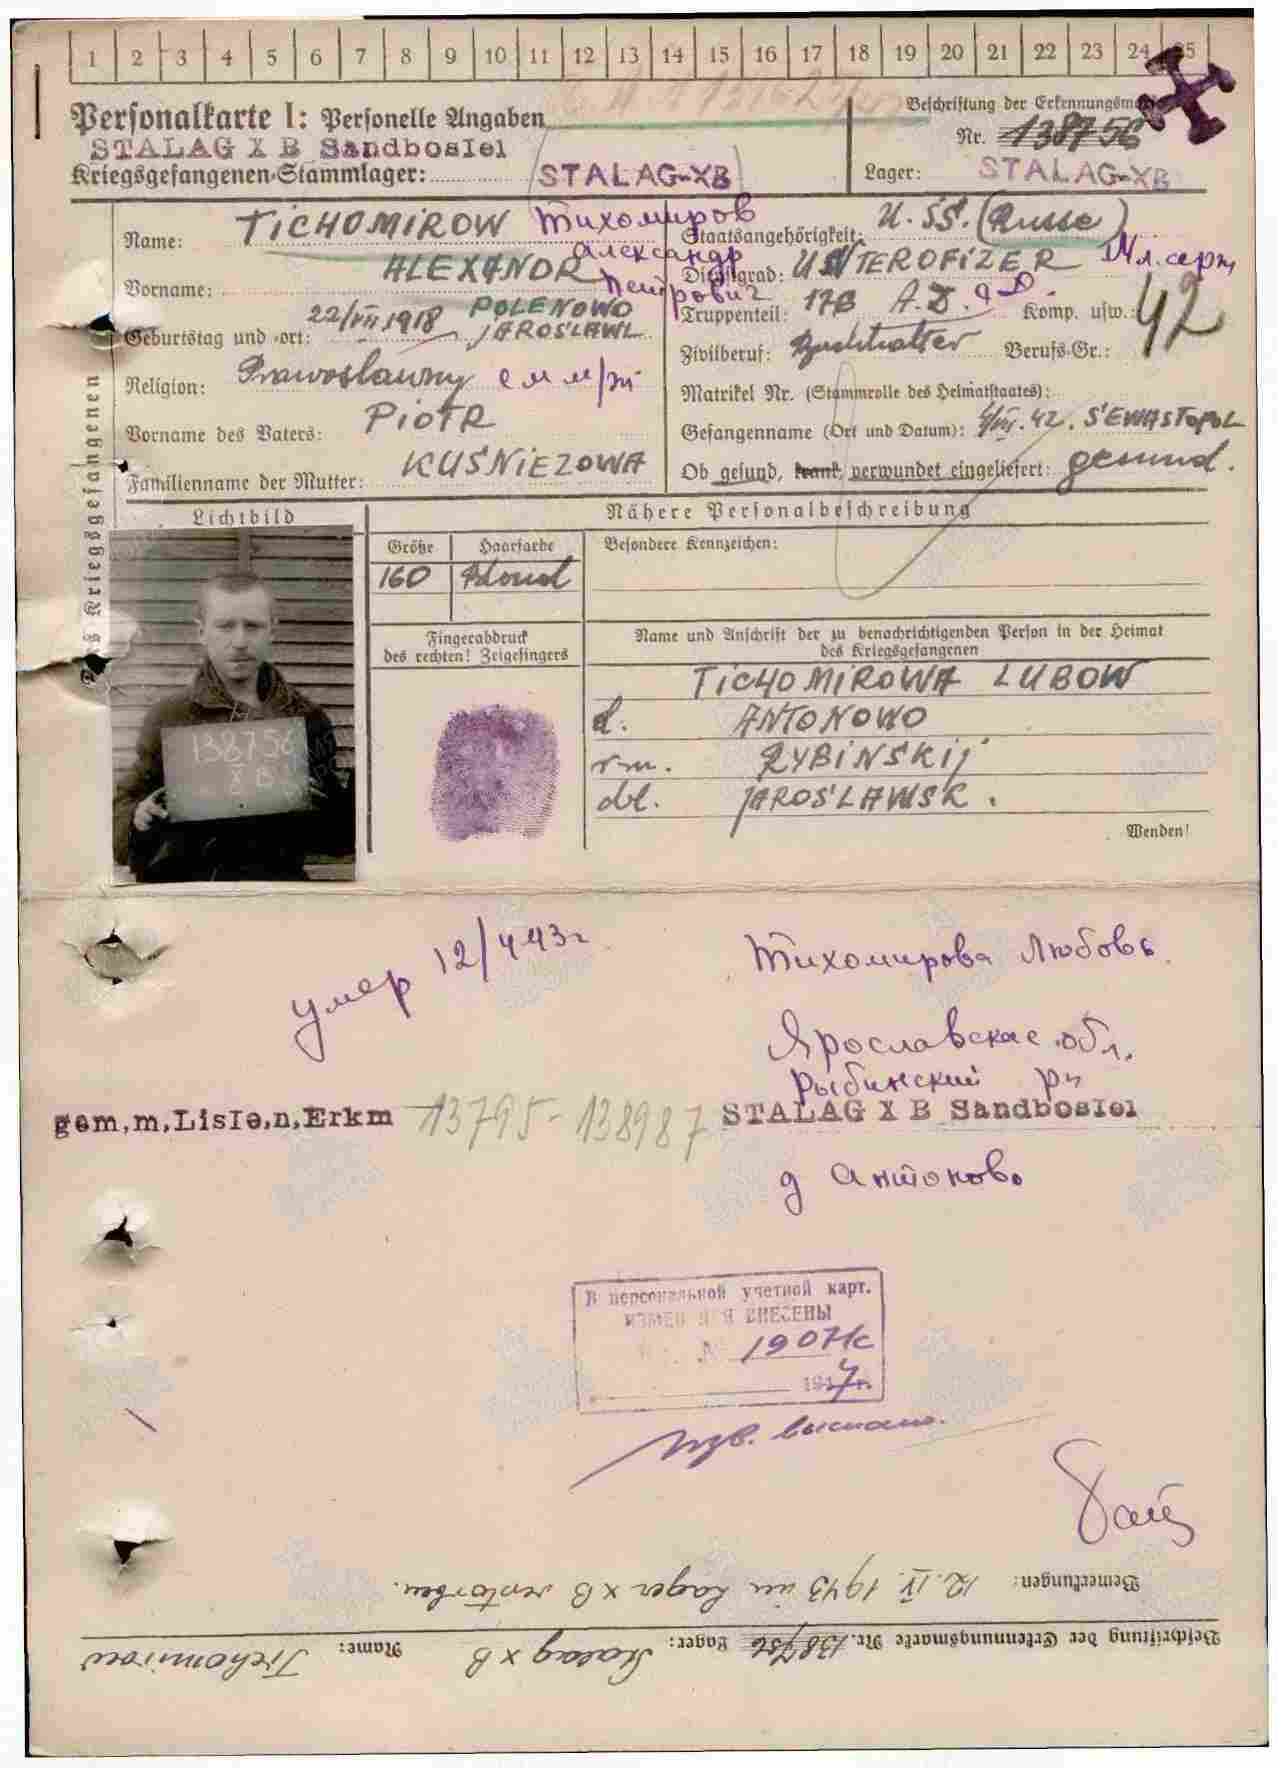 1 2 3 4 5 6 7 8 9 10 11 12 13 14 15 16 17 18 19 20 21 22 23 24 25
Personalkarte I: Personelle Angaben
STALAG X B Sandbostel
Kriegsgefangenen-Stammlager: STALAG-XB
Beschriftung der Erkennungsmarke
Nr. 138756
Lager: STALAG-XB
des Kriegsgefangenen
Name: TICHOMIROW Тихомиров
Vorname: ALEXANDR Александр Петрович
Geburtstag und -ort: 22/VII 1918 POLENOWO JAROSLAWL
Religion: Prawoslawny
Vorname des Vaters: PIOTR
Familienname der Mutter: KUŚNIEZOWA
Staatsangehörigkeit: U.SS. (Russe)
Dienstgrad: UNTEROFIZER Мл. серж
Truppenteil: 17B A.D. Komp. usw.: 42
Zivilberuf: Buchhalter Berufs-Gr.:
Matrikel Nr. (Stammrolle des Heimatstaates):
Gefangenname (Ort und Datum): 4/VII.42. SEWASTOPOL
Ob gesund, krank, verwundet eingeliefert: gesund.
Lichtbild
138756
X B
Nähere Personalbeschreibung
Größe Haarfarbe Besondere Kennzeichen:
160 Blond
Fingerabdruck
des rechten! Zeigefingers
Name und Anschrift der zu benachrichtigenden Person in der Heimat
des Kriegsgefangenen
TICHOMIROWA LUBOW
d. ANTONOWO
rm. RYBINSKIJ
obl. JAROSLAWSK.
Wenden!
умер 12/4 43г
Тихомирова Любовь
Ярославская обл.
Рыбинский рн
gem.m.Liste.n.Erkm 13795-138987 STALAG X B Sandbostel
д Антоново
В персональной учетной карт.
ИЗМЕНЕНИЯ ВНЕСЕНЫ
№ 1907/с
1947г.
Изв. выслано.
Bemerkungen: 12. IV. 1943 im Lager X B verstorben.
Beschriftung der Erkennungsmarke Nr. 138756 Lager: Stalag X B Name: Tichomirow